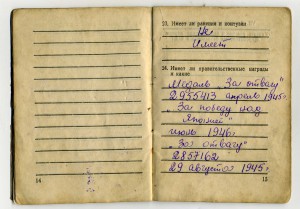 23. Имеет ли ранения и контузии
Не
Имеет
24. Имеет ли правительственные награды
и какие
Медаль „За отвагу"
2955413 апрель 1945г
„За победу над
Японией"
июль 1946г
„За отвагу"
2857162
29 августа 1945г
14
15